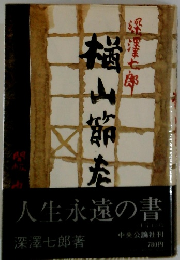 深澤七郎
楢山節考
人生永遠の書
中央公論社刊
深澤七郎著
200円